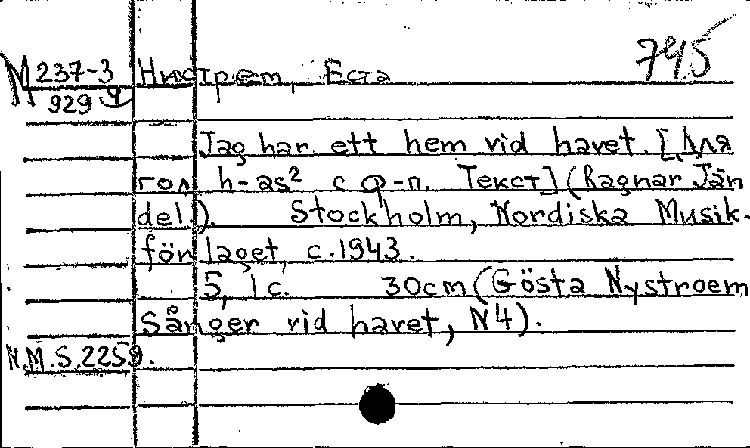 745
М 237-3 Нистрем, Еста
929 9
Jag har ett hem vid havet. [Для
гол. h-as² с ф-п. Текст] (Ragnar Jän
del.). Stockholm, Nordiska Musik-
förlaget, c. 1943.
5, 1 c. 30cm (Gösta Nystroem
Sånger vid havet, N4).
N.M.S.2259.